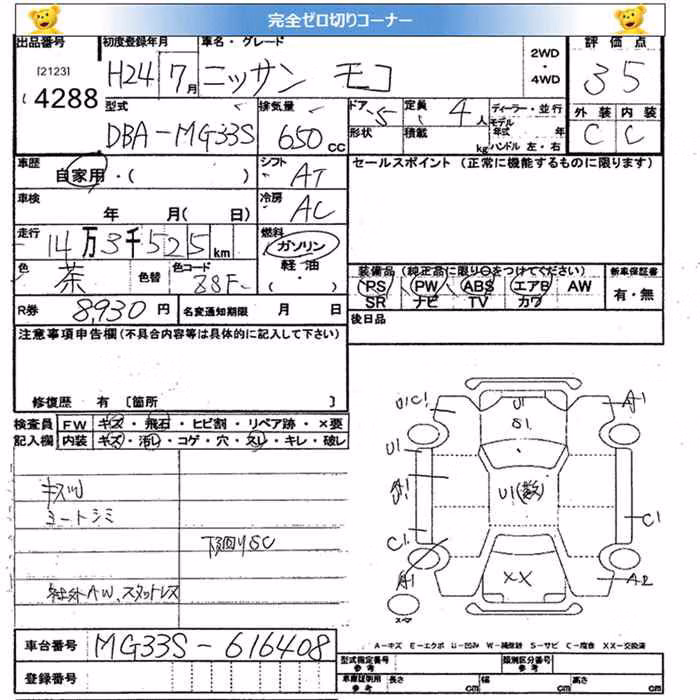 完全ゼロ切りコーナー
出品番号 初度登録年月 車名・グレード 2WD・4WD 評価点
[2123] 4288 H24 7月 ニッサン モコ 35
型式 排気量 ドア 5 定員 4人 ディーラー・並行
DBA-MG33S 650 CC 形状 積載 kg モデル年式 年 ハンドル 左・右
外装 内装
C C
車歴 自家用・( ) シフト AT セールスポイント (正常に機能するものに限ります)
車検 年 月(日) 冷房 AC
走行 14万3千525km 燃料 ガソリン・軽油
色 茶 色替 色コード 88F-
装備品 (純正品に限り○をつけてください) 新車保証書
PS PW ABS エアB AW 有・無
SR ナビ TV カワ
R券 8,930円 名変通知期限 月 日 後日品
注意事項申告欄 (不具合内容等は具体的に記入して下さい)
修復歴 有 [箇所 ]
検査員 FW キズ・飛石・ヒビ割・リペア跡・×要
記入欄 内装 キズ・汚レ・コゲ・穴・スレ・キレ・破レ
シートシミ
下回りSC
社外AW、スタットレス
U1C1 U1 A1
S1
U1
U1(数)
C1 C1
A1 XX A2
スペア
A-キズ E-エクボ U-凹み W-補修跡 S-サビ C-腐食 XX-交換済
車台番号 MG33S-616408
登録番号
型式指定番号 参考 類別区分番号 参考
車庫証明用 参考 長さ cm 幅 cm 高さ cm